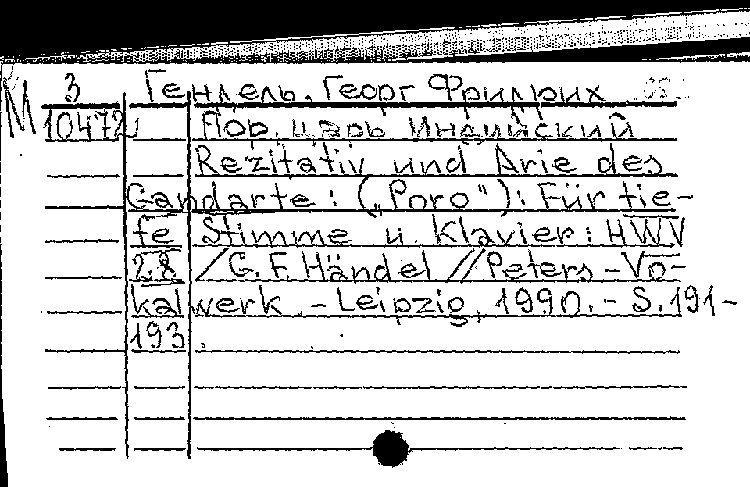 М 3 Гендель, Георг Фридрих
10472 Пор, царь Индийский
Rezitativ und Arie des
Gandarte: („Poro"): Für tie-
fe Stimme u. Klavier: HWV
28 / G. F. Händel // Peters-Vo-
kalwerk. - Leipzig, 1990. - S. 191-
193.